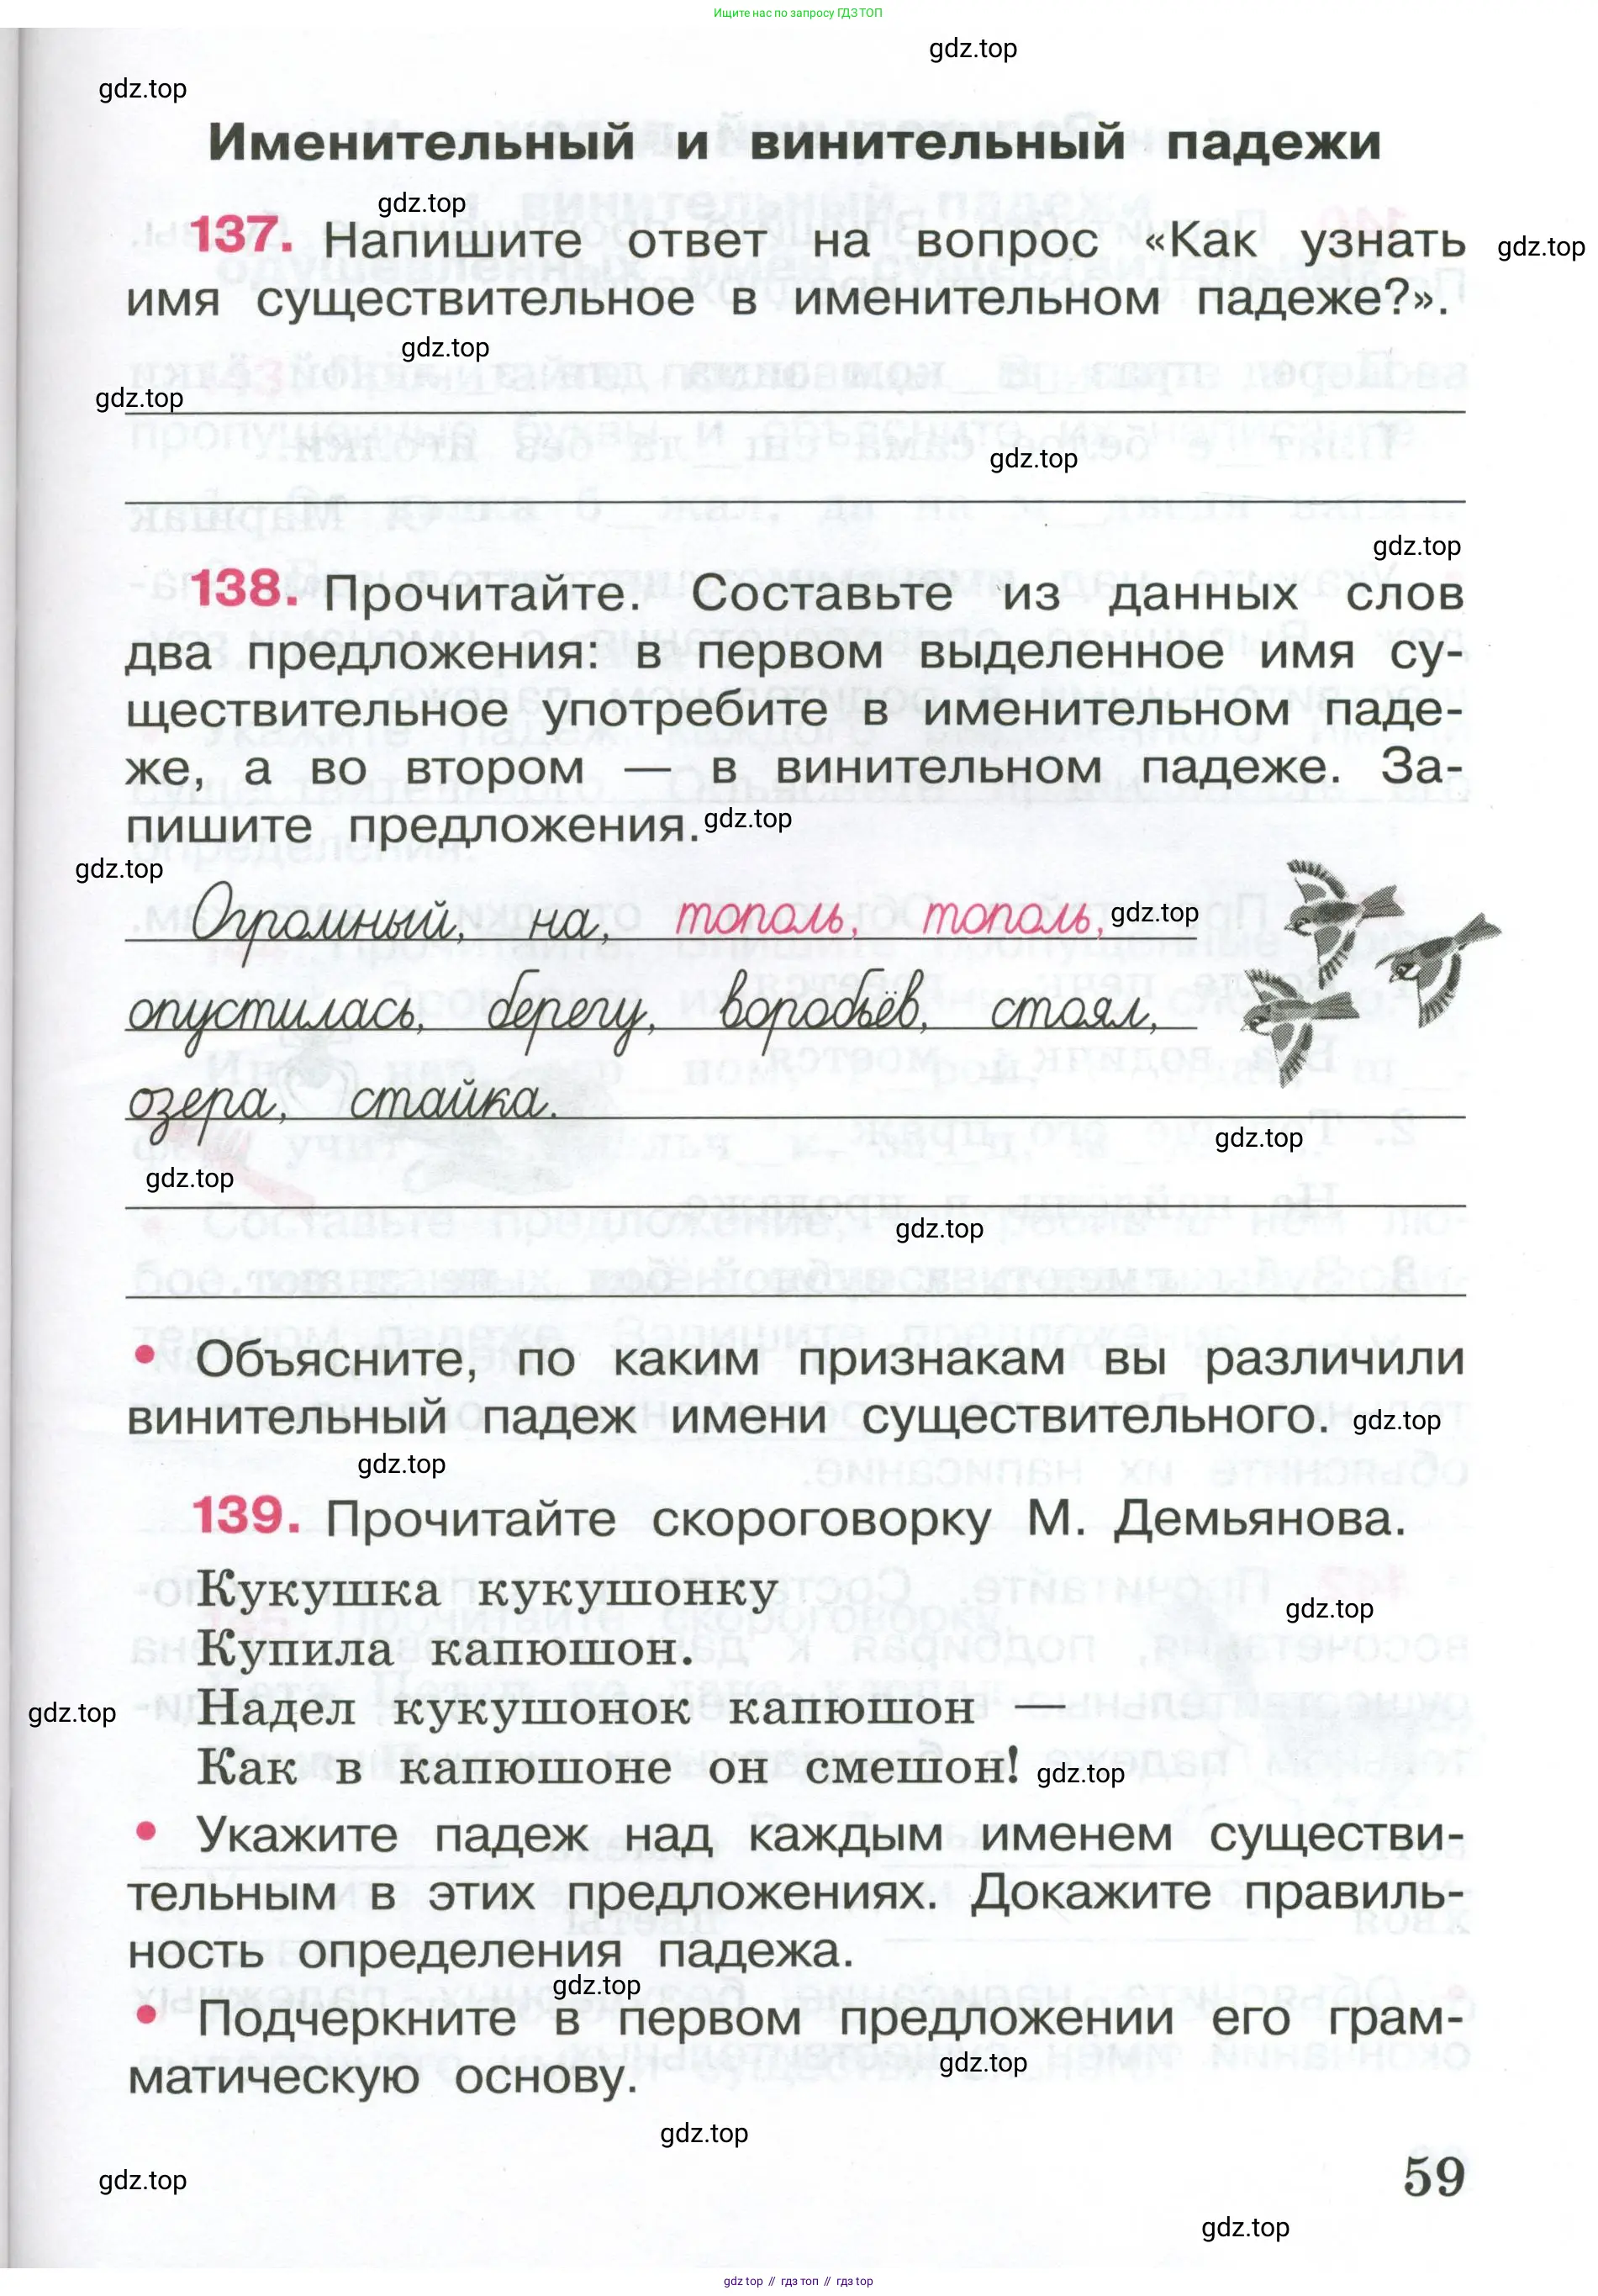 Ищите нас по запросу ГДЗ ТОП
gdz.top
gdz.top
Именительный и винительный падежи
gdz.top
137. Напишите ответ на вопрос «Как узнать
gdz.top
имя существительное в именительном падеже?».
gdz.top
gdz.top
gdz.top
gdz.top
138. Прочитайте. Составьте из данных слов
два предложения: в первом выделенное имя су-
ществительное употребите в именительном паде-
же, а во втором — в винительном падеже. За-
пишите предложения.
gdz.top
gdz.top
Огромный, на, тополь, тополь,
gdz.top
опустилась, берегу, воробьёв, стоял,
озера, стайка.
gdz.top
gdz.top
gdz.top
• Объясните, по каким признакам вы различили
винительный падеж имени существительного.
gdz.top
gdz.top
139. Прочитайте скороговорку М. Демьянова.
Кукушка кукушонку
gdz.top
Купила капюшон.
Надел кукушонок капюшон —
gdz.top
Как в капюшоне он смешон!
gdz.top
• Укажите падеж над каждым именем существи-
тельным в этих предложениях. Докажите правиль-
ность определения падежа.
gdz.top
• Подчеркните в первом предложении его грам-
матическую основу.
gdz.top
gdz.top
gdz.top
59
gdz.top
gdz top // гдз топ // гдз top